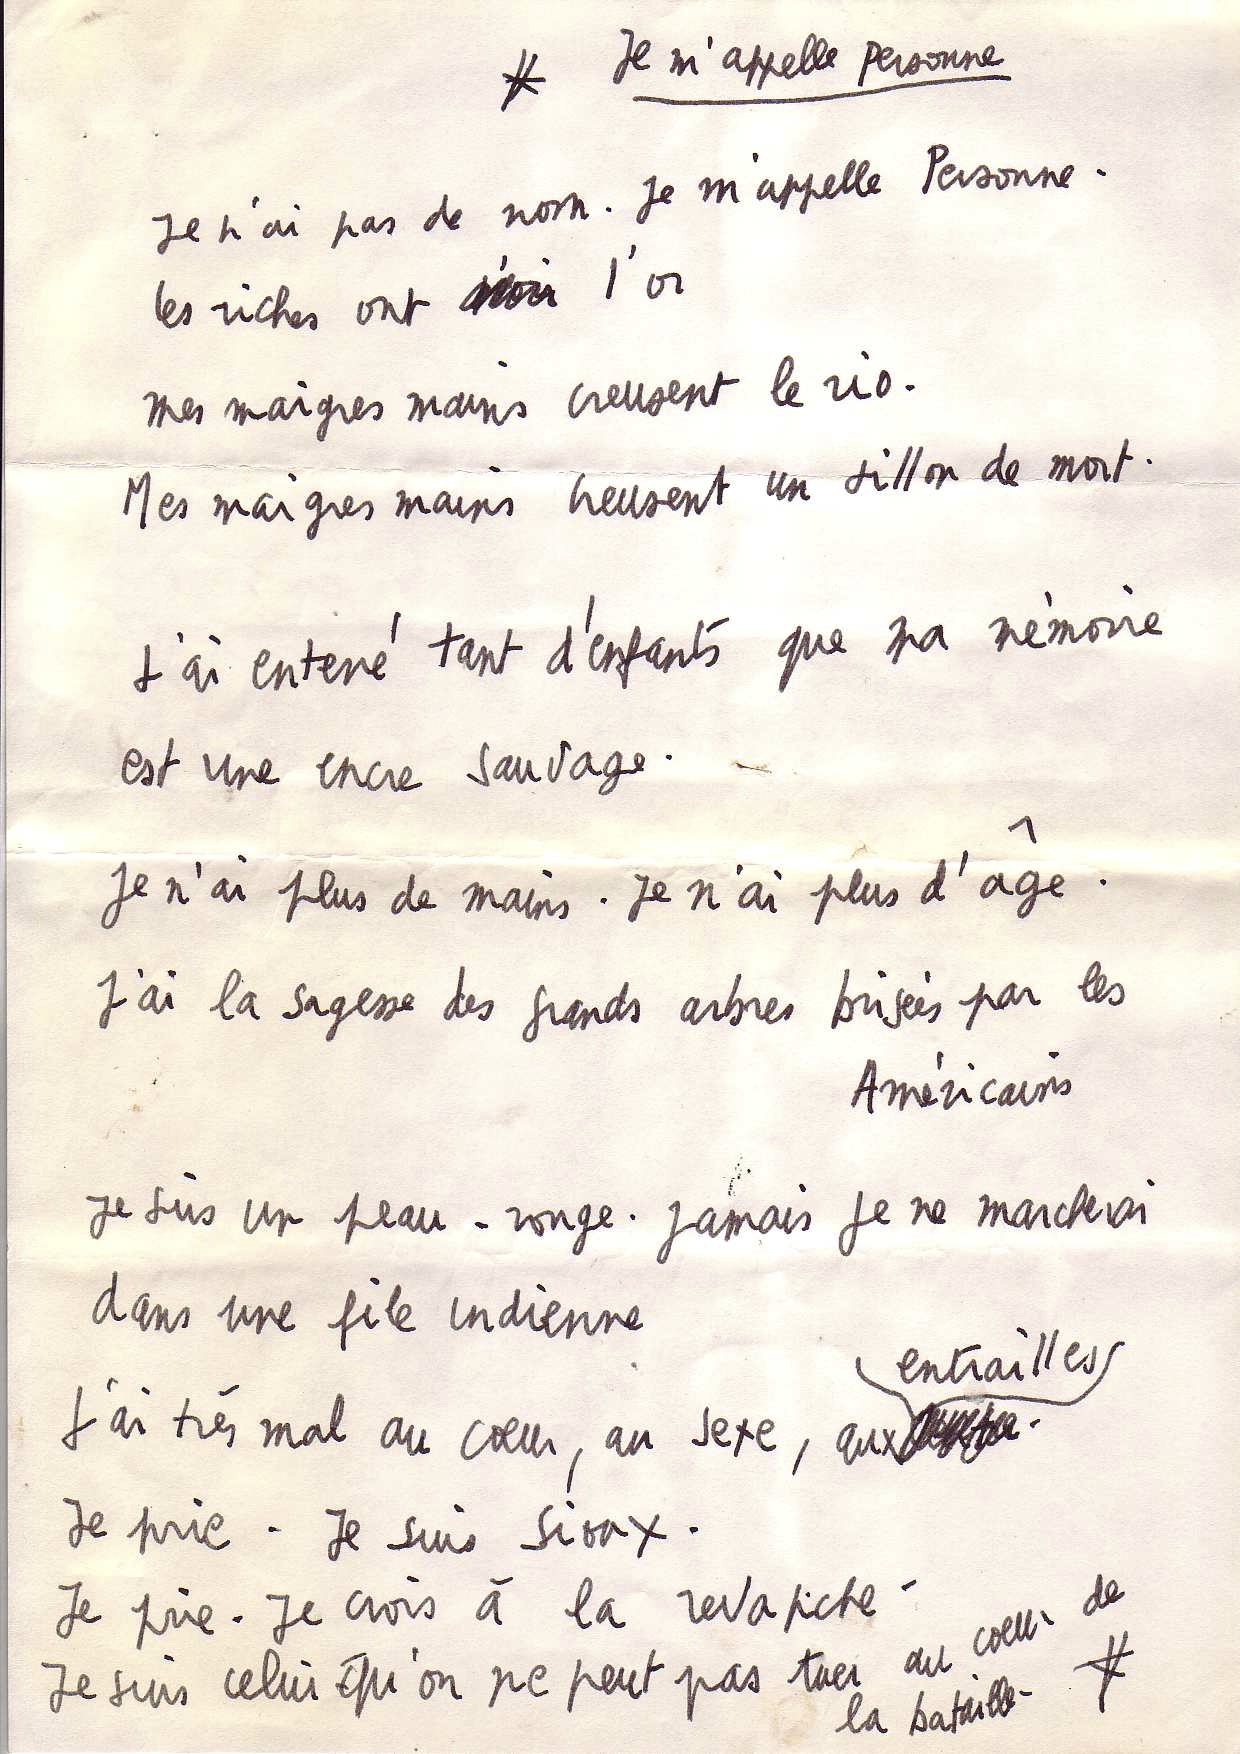 # Je m'appelle Personne
Je n'ai pas de nom. Je m'appelle Personne.
les riches ont l'or
mes maigres mains creusent le rio.
Mes maigres mains creusent un sillon de mort.
J'ai enterré tant d'enfants que ma mémoire
est une encre sauvage.
Je n'ai plus de mains. Je n'ai plus d'âge.
J'ai la sagesse des grands arbres brisés par les
Américains
Je suis un peau-rouge. Jamais je ne marcherai
dans une file indienne
entrailles
J'ai très mal au coeur, au sexe, aux
Je prie. Je suis Sioux.
Je prie. Je crois à la revanche.
Je suis celui qu'on ne peut pas tuer au coeur de
la bataille. #